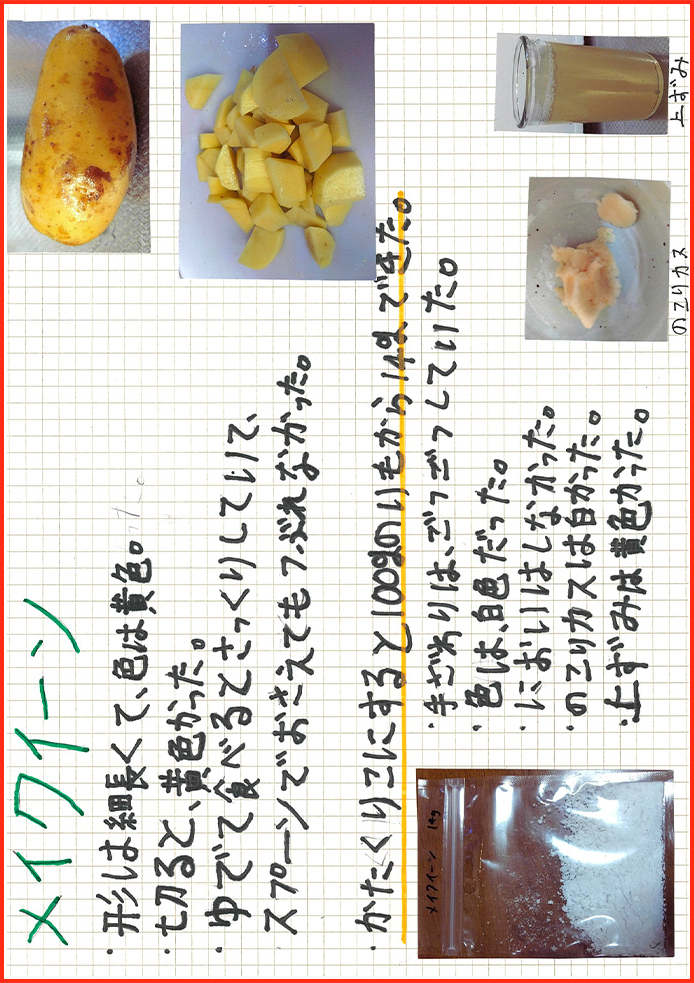 メイクイーン
・形は細長くて、色は黄色。
・切ると、黄色かった。
・ゆでて食べるとさっくりしていて、
スプーンでおさえてもつぶれなかった。
・かたくりこにすると100gのいもから14gできた。
・手ざわりは、ごつごつしていた。
・色は、白色だった。
・においはしなかった。
・のこりカスは白かった。
・上ずみは黄色かった。
メイクイーン 14g
のこりカス
上ずみ